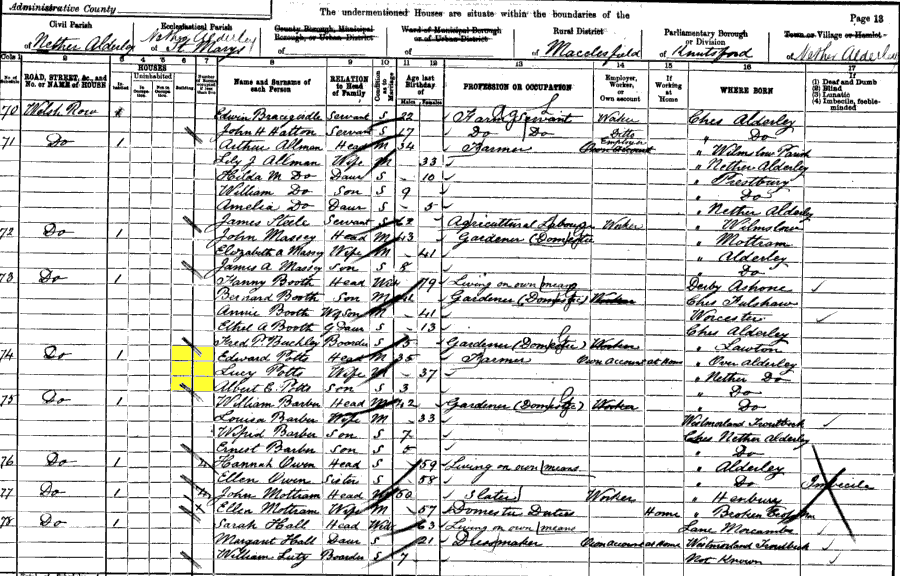 Administrative County
The undermentioned Houses are situate within the boundaries of the
Page 13
Civil Parish
of Nether Alderley
Ecclesiastical Parish
of St Marys
County Borough, Municipal Borough, or Urban District
of
Ward of Municipal Borough or of Urban District
of
Rural District
of Macclesfield
Parliamentary Borough or Division
of Knutsford
Town or Village or Hamlet
of Nether Alderley
ROAD, STREET, &c., and No. or NAME of HOUSE
HOUSES
Uninhabited
Name and Surname of each Person
RELATION to Head of Family
Condition as to Marriage
Age last Birthday of
Males Females
PROFESSION OR OCCUPATION
Employer, Worker, or Own account
If Working at Home
WHERE BORN
(1) Deaf and Dumb
(2) Blind
(3) Lunatic
(4) Imbecile, feeble-minded
70 Welsh Row Edwin Servant S 22 Servant Worker Ches Alderley
John H Hatton Servant S 17 Do Do Ditto " Do
71 Do 1 Arthur Allman Head M 34 Farmer Employer " Wilmslow
Lily J Allman Wife M 33 " Nether Alderley
Hilda M Do Daur S 10 " Prestbury
William Do Son S 9 " Do
Amelia Do Daur S 5 " Nether Alderley
James Servant S Agricultural Labourer Worker " Wilmslow
72 Do 1 John Massey Head M 43 Gardener (Domestic " Mottram
Elizabeth A Massey Wife M 41 " Alderley
James A Massey Son S " Do
73 Do 1 Fanny Booth Head Wid 79 Living on own means Derby
Bernard Booth Son M Gardener (Domestic) Worker Ches Fulshaw
Annie Booth M 41 Worcester
Ethel A Booth G Daur S 13 Ches Alderley
Fred P. Boarder S Gardener (Domestic) Worker " Lawton
74 Do 1 Edward Potts Head M 35 Farmer Own account at Home " Over Alderley
Lucy Potts Wife M 37 " Nether Do
Albert E Potts Son S 3 " Do
75 Do 1 William Barber Head M 42 Gardener (Domestic) Worker " Do
Louisa Barber Wife M 33 Westmorland Troutbeck
Wilfrid Barber Son S 7 Ches Nether Alderley
Ernest Barber Son S 5 " Do
76 Do 1 4 Hannah Owen Head S 59 Living on own means " Alderley
Ellen Owen Sister S 58 " Do Imbecile
77 Do 1 4 John Mottram Head M 50 Slater Worker " Henbury
Ellen Mottram Wife M 57 Domestic Duties Home " Broken Cross
78 Do 1 Sarah Hall Head Wid 63 Living on own means Lanc Morcambe
Margaret Hall Daur S 21 Dressmaker Own account at Home Westmorland Troutbeck
William Lutz Boarder S 7 Not Known